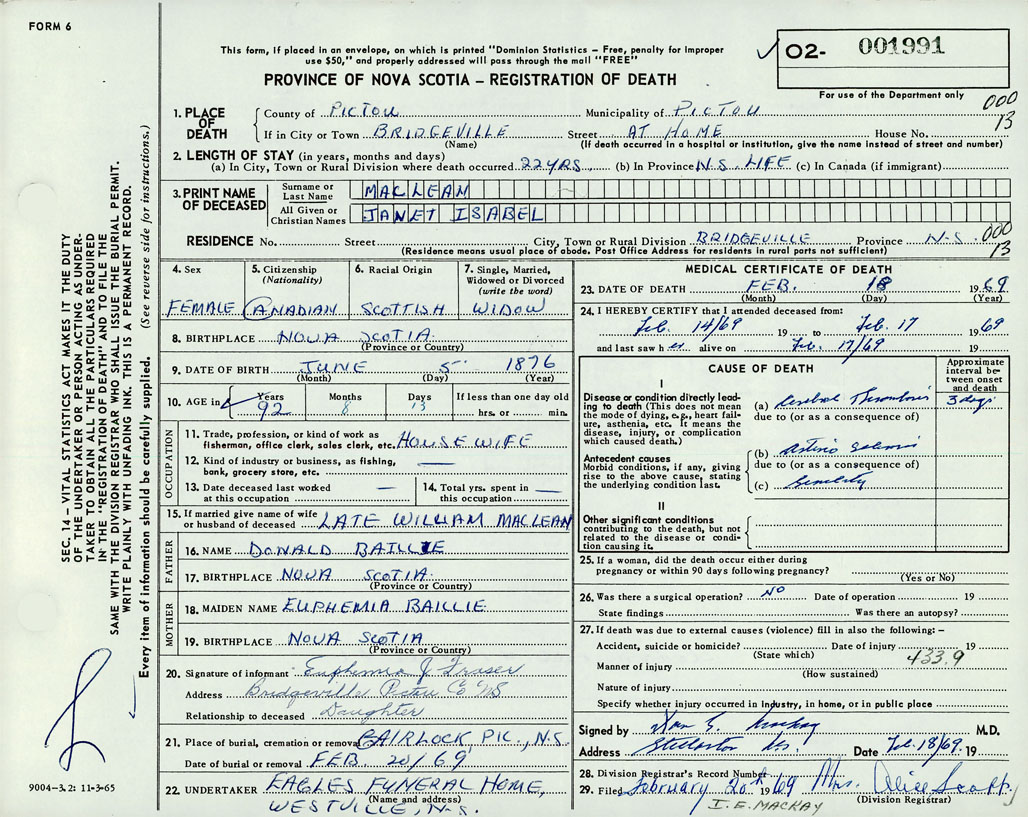 FORM 6
This form, if placed in an envelope, on which is printed "Dominion Statistics – Free, penalty for improper
use $50," and properly addressed will pass through the mail "FREE"
PROVINCE OF NOVA SCOTIA – REGISTRATION OF DEATH
✓ 02- 001991
For use of the Department only
000
13
1. PLACE OF DEATH
County of PICTOU Municipality of PICTOU
If in City or Town BRIDGEVILLE Street AT HOME House No.
(Name) (If death occurred in a hospital or institution, give the name instead of street and number)
2. LENGTH OF STAY (in years, months and days)
(a) In City, Town or Rural Division where death occurred 22 YRS. (b) In Province N.S. LIFE (c) In Canada (if immigrant)
3. PRINT NAME OF DECEASED
Surname or Last Name MACLEAN
All Given or Christian Names JANET ISABEL
RESIDENCE No. Street City, Town or Rural Division BRIDGEVILLE Province N.S. 000
(Residence means usual place of abode. Post Office Address for residents in rural parts not sufficient) 13
4. Sex
FEMALE
5. Citizenship
(Nationality)
CANADIAN
6. Racial Origin
SCOTTISH
7. Single, Married,
Widowed or Divorced
(write the word)
WIDOW
8. BIRTHPLACE NOVA SCOTIA
(Province or Country)
9. DATE OF BIRTH JUNE 5 1876
(Month) (Day) (Year)
10. AGE in Years Months Days If less than one day old
92 8 13 hrs. or min.
OCCUPATION
11. Trade, profession, or kind of work as
fisherman, office clerk, sales clerk, etc. HOUSEWIFE
12. Kind of industry or business, as fishing,
bank, grocery store, etc. —
13. Date deceased last worked
at this occupation —
14. Total yrs. spent in
this occupation —
15. If married give name of wife
or husband of deceased LATE WILLIAM MACLEAN
FATHER
16. NAME DONALD BAILLIE
17. BIRTHPLACE NOVA SCOTIA
(Province or Country)
MOTHER
18. MAIDEN NAME EUPHEMIA BAILLIE
19. BIRTHPLACE NOVA SCOTIA
(Province or Country)
20. Signature of informant Euphemia J. Fraser
Address Bridgeville Pictou Co NS
Relationship to deceased Daughter
21. Place of burial, cremation or removal GAIRLOCK PIC., N.S.
Date of burial or removal FEB. 20/69
22. UNDERTAKER EAGLES FUNERAL HOME,
(Name and address)
WESTVILLE, N.S.
MEDICAL CERTIFICATE OF DEATH
23. DATE OF DEATH FEB. 18 1969
(Month) (Day) (Year)
24. I HEREBY CERTIFY that I attended deceased from:
Feb. 14/69 19 to Feb. 17 1969
and last saw her alive on Feb. 17/69 19
CAUSE OF DEATH
Approximate interval between onset and death
I
Disease or condition directly leading to death (This does not mean the mode of dying, e.g., heart failure, asthenia, etc. It means the disease, injury, or complication which caused death.)
(a) Cerebral Thrombosis 3 days
due to (or as a consequence of)
Antecedent causes
Morbid conditions, if any, giving rise to the above cause, stating the underlying condition last.
(b) Arterio Sclerosis
due to (or as a consequence of)
(c) Senility
II
Other significant conditions
contributing to the death, but not related to the disease or condition causing it.
25. If a woman, did the death occur either during
pregnancy or within 90 days following pregnancy?
(Yes or No)
26. Was there a surgical operation? NO Date of operation 19
State findings Was there an autopsy?
27. If death was due to external causes (violence) fill in also the following: –
Accident, suicide or homicide? Date of injury 19
(State which) 433.9
Manner of injury
(How sustained)
Nature of injury
Specify whether injury occurred in industry, in home, or in public place
Signed by M.D.
Address Stellarton NS. Date Feb. 18/69. 19
28. Division Registrar's Record Number
29. Filed February 20th 1969 Mrs. Alice
(Division Registrar)
I. E. MACKAY
SEC. 14 – VITAL STATISTICS ACT MAKES IT THE DUTY
OF THE UNDERTAKER OR PERSON ACTING AS UNDER-
TAKER TO OBTAIN ALL THE PARTICULARS REQUIRED
IN THE "REGISTRATION OF DEATH" AND TO FILE THE
SAME WITH THE DIVISION REGISTRAR WHO SHALL ISSUE THE BURIAL PERMIT.
WRITE PLAINLY WITH UNFADING INK. THIS IS A PERMANENT RECORD.
Every item of information should be carefully supplied. (See reverse side for instructions.)
9004–3.2: 11-3-65